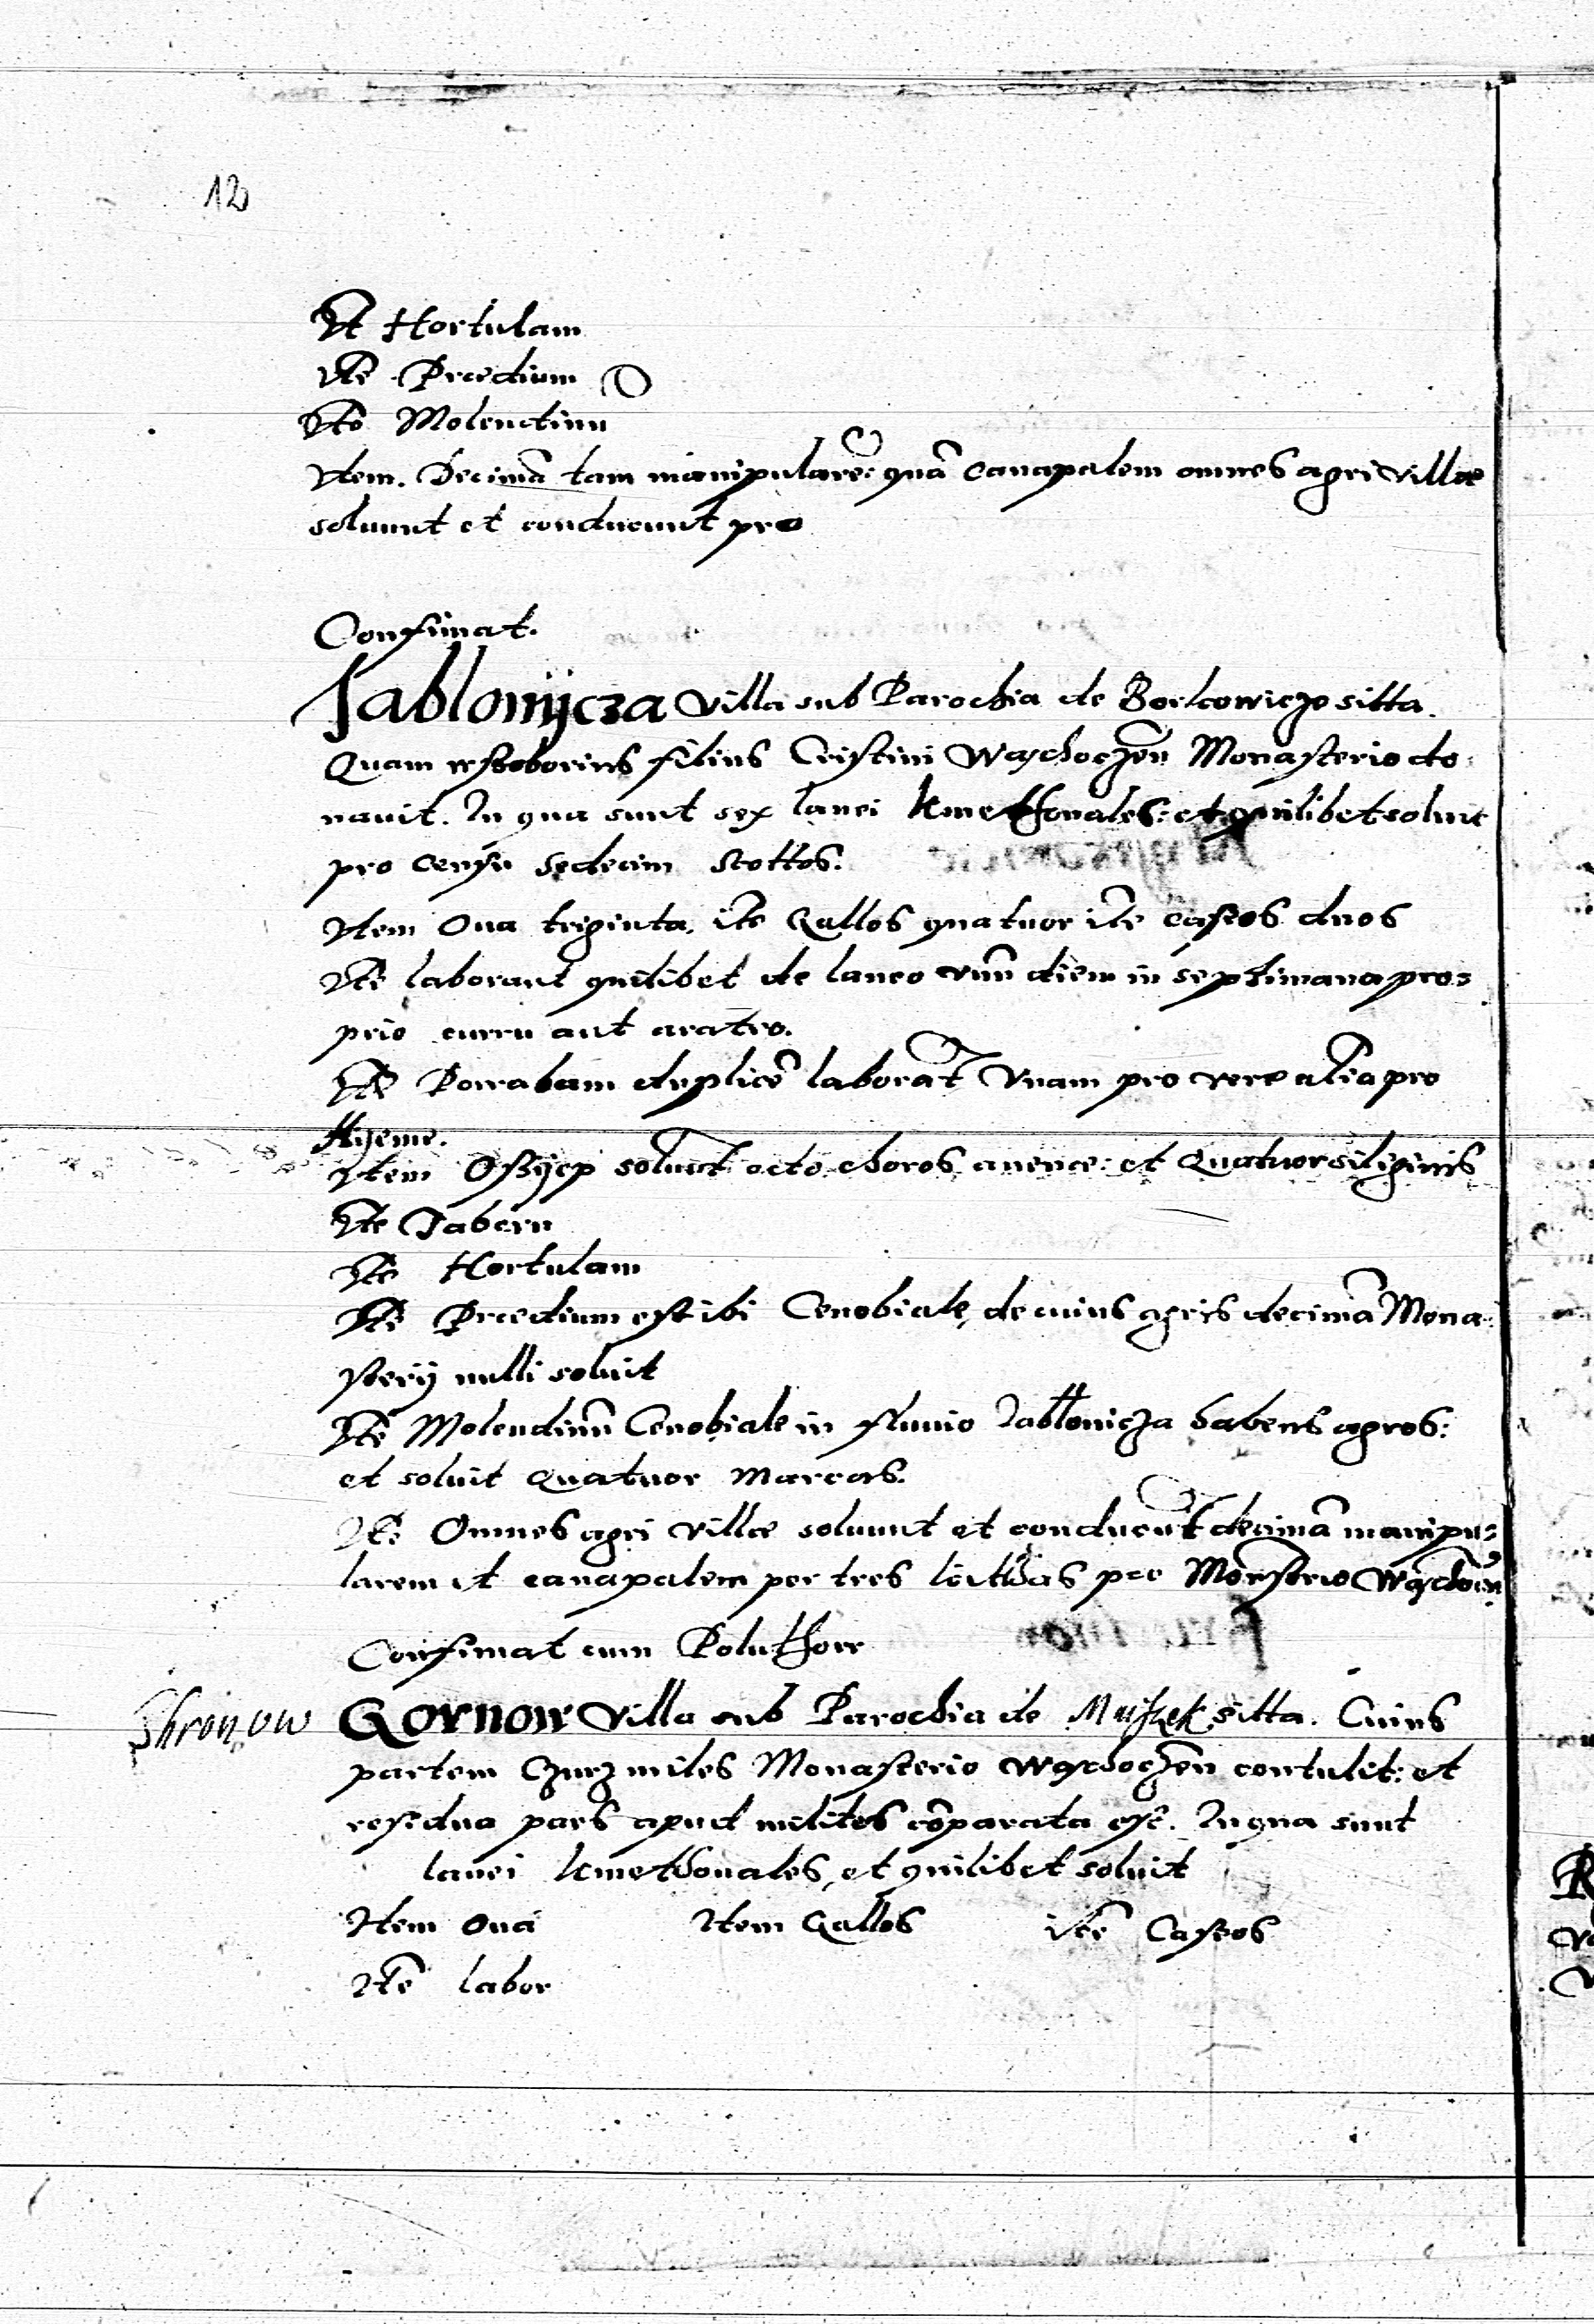 12
Ite Hortulam
Ite Prædium
Ite Molendinu
Item. Decimā tam manipularē: quā canapalem omnes agri villæ
soluunt et conducunt pro
Confinat.
Jablonijcza villa sub Parochia de Borkowicze sitta.
Quam Wssеborius filius Cristini Wąchoczeñ Monasterio do-
nauit. In qua sunt sex lanei kmethonales: et quilibet soluit
pro censu sedecim scottos.
Item Oua triginta. itē Gallos quatuor itē caseos duos
Itē laborant quilibet de laneo vnū diem in septimana pro=
prio curru aut aratro.
Itē Powabam duplicē laborāt Vnam pro vere aliā pro
Hyeme.
Item Ossijep soluūt octo choros auenæ: et Quatuor siliginis
Ite Tabern
Ite Hortulam
Itē Prædium est ibi Cenobiale, de cuius agris decimā Mona-
sterij nulli soluit
Itē Molendinū Cenobiale in fluuio Jabłonicza habens agros:
et soluit Quatuor Marcas.
Itē Omnes agri villæ soluunt et conducūt decimā manipu=
larem et canapalem per tres
pro Monstrio
Confinat cum Poluthow
Shronow
Gornow villa sub Parochia de sitta. Cuius
partem miles Monasterio Wąchoczeñ contulit: et
residua pars apud milites cōparata est. In qua sunt
lanei kmethonales, et quilibet soluit
Item Oua Item Gallos itē Caseos
Itē labor